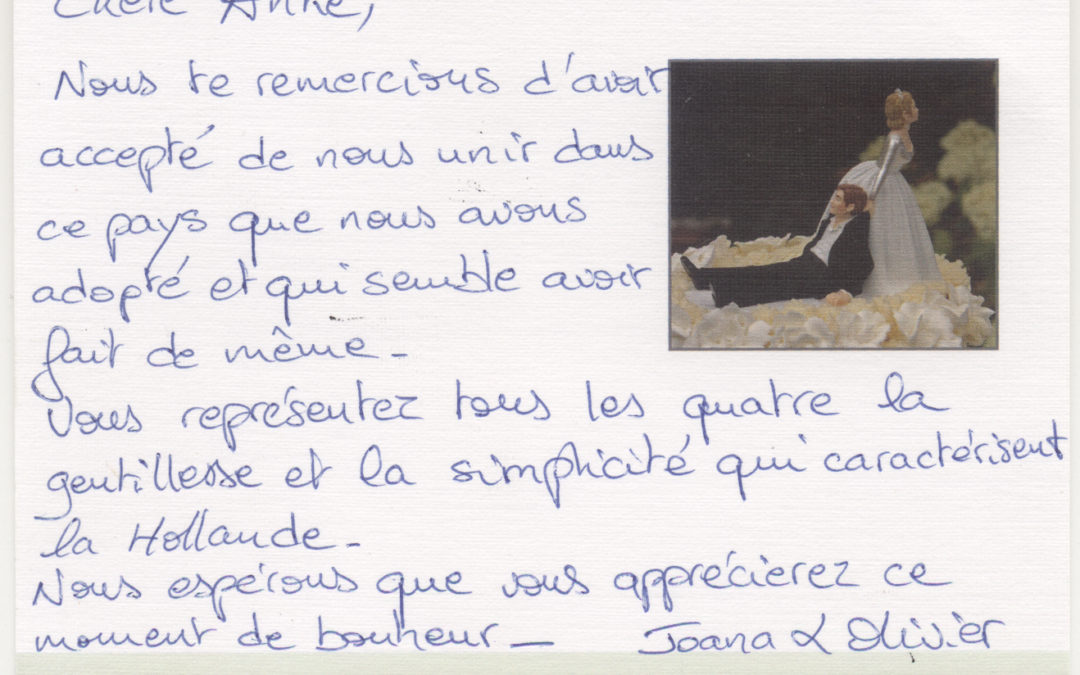 Chère Anne,
Nous te remercions d'avoir
accepté de nous unir dans
ce pays que nous avons
adopté et qui semble avoir
fait de même -
Vous représentez tous les quatre la
gentillesse et la simplicité qui caractérisent
la Hollande -
Nous espérons que vous apprécierez ce
moment de bonheur -   Joana & Olivier